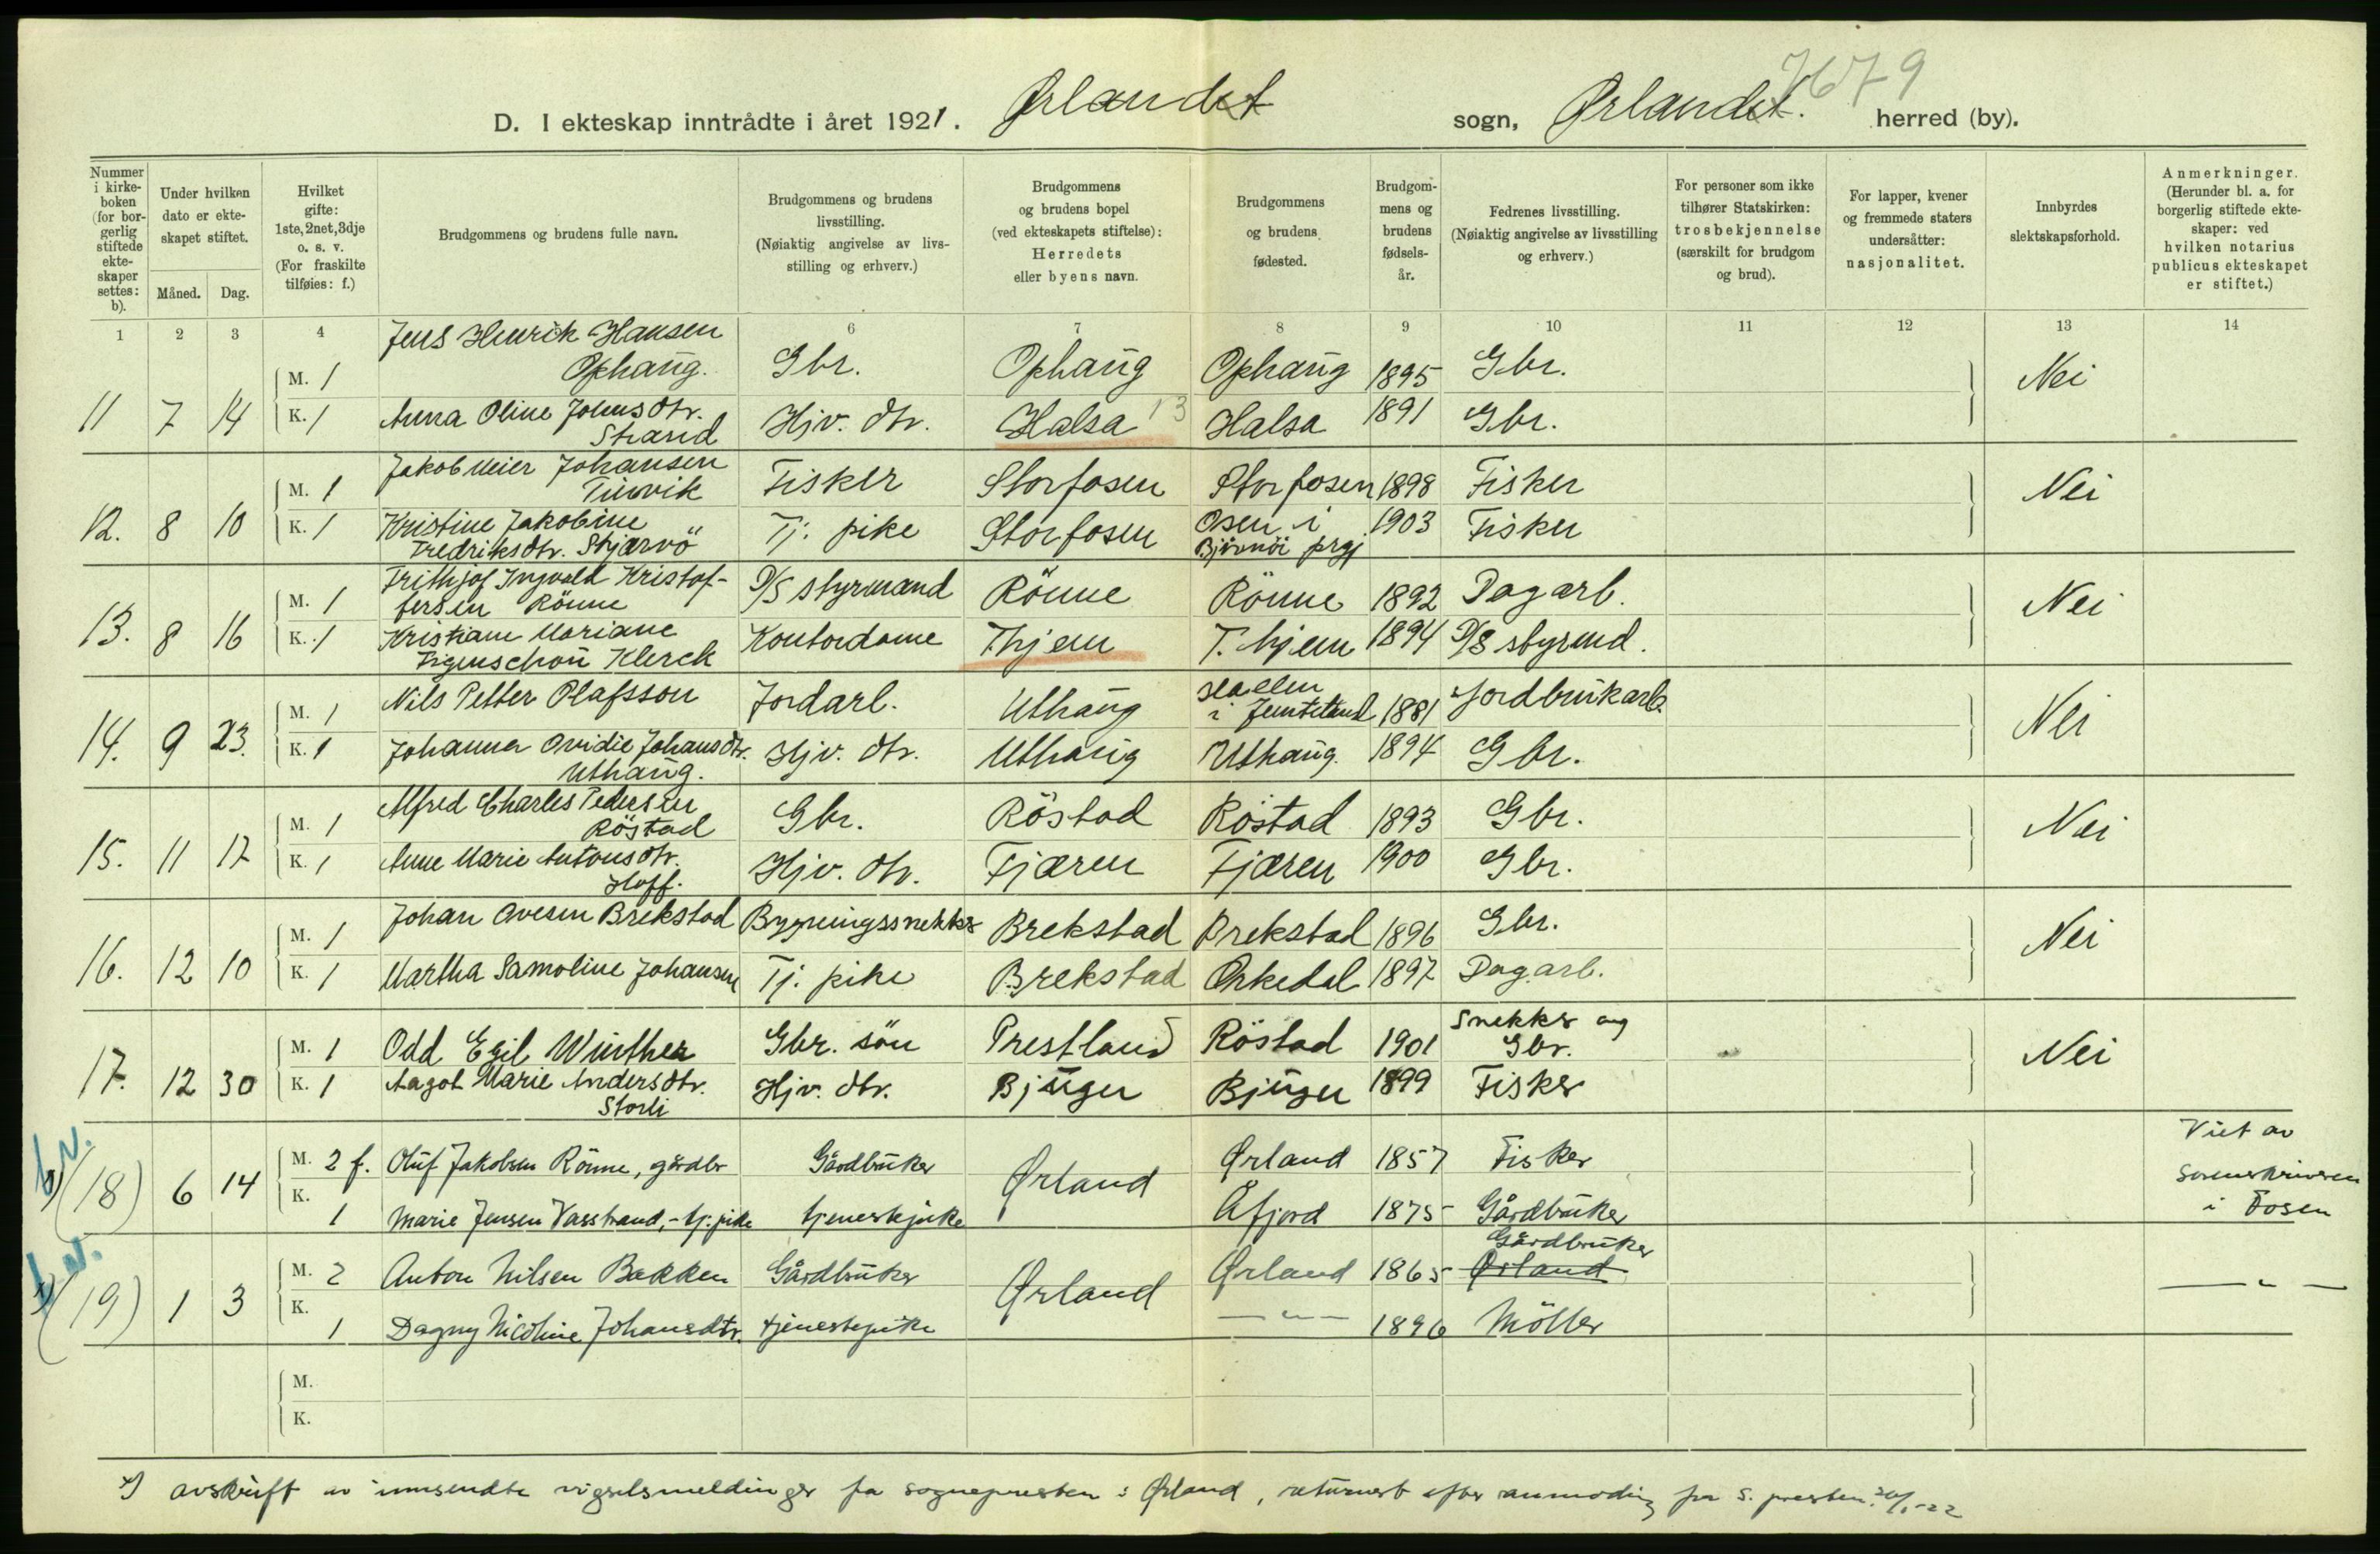 7679
D. I ekteskap inntrådte i året 1921. Ørlandet sogn, Ørlandet. herred (by).
Nummer i kirkeboken (for borgerlig stiftede ekteskaper settes: b).
Under hvilken dato er ekteskapet stiftet.
Måned. Dag.
Hvilket gifte: 1ste, 2net, 3dje o. s. v. (For fraskilte tilføies: f.)
Brudgommens og brudens fulle navn.
Brudgommens og brudens livsstilling. (Nøiaktig angivelse av livsstilling og erhverv.)
Brudgommens og brudens bopel (ved ekteskapets stiftelse): Herredets eller byens navn.
Brudgommens og brudens fødested.
Brudgommens og brudens fødselsår.
Fedrenes livsstilling. (Nøiaktig angivelse av livsstilling og erhverv.)
For personer som ikke tilhører Statskirken: trosbekjennelse (særskilt for brudgom og brud).
For lapper, kvener og fremmede staters undersåtter: nasjonalitet.
Innbyrdes slektskapsforhold.
Anmerkninger. (Herunder bl. a. for borgerlig stiftede ekteskaper: ved hvilken notarius publicus ekteskapet er stiftet.)
1 2 3 4 6 7 8 9 10 11 12 13 14
Jens Henrik Hansen
M. 1 Ophaug. Gbr. Ophaug Ophaug 1895 Gbr. Nei
11 7 14 K. 1 Anna Oline Johnsdtr. Hjv. dtr. Halsa 13 Halsa 1891 Gbr.
Strand
Jakob Meier Johansen
M. 1 Fisker Storfosen Storfosen 1898 Fisker Nei
12. 8 10 K. 1 Kristine Jakobine Tj. pike Storfosen Osen i 1903 Fisker
Fredriksdtr. Skjærvö Bjørnör prgj
Frithjof Ingvald Kristof-
M. 1 fersen Rönne D/S styrmand Rönne Rönne 1892 Dagarb. Nei
13. 8 16 K. 1 Kristiane Mariane Kontordame Thjem T.hjem 1894 D/S styrmd.
Klerck
M. 1 Nils Petter Olafsson Jordarb. Uthaug
i Jemteland 1881 Jordbrukarb. Nei
14. 9 23. K. 1 Johanna Ovidie Johansdtr. Hjv. dtr. Uthaug Uthaug. 1894 Gbr.
Uthaug.
Alfred Charles Pedersen
M. 1 Röstad Gbr. Röstad Röstad 1893 Gbr. Nei
15. 11 17 K. 1 Anne Marie Antonsdtr. Hjv. dtr. Fjæren Fjæren 1900 Gbr.
Hoff.
M. 1 Johan Ovesen Brekstad Bygningssnekker Brekstad Brekstad 1896 Gbr. Nei
16. 12 10 K. 1 Martha Samoline Johansen Tj. pike Brekstad Orkedal 1897 Dagarb.
Snekker og
M. 1 Odd Egil Winther Gbr. sön Prestland Röstad 1901 Gbr. Nei
17. 12 30 K. 1 Aagot Marie Andersdtr. Hjv. dtr. Bjugn Bjugn 1899 Fisker
Storli
b.v.
x) (18) 6 14 M. 2 f. Oluf Jakobsen Rönne, gårdbr Gårdbruker Ørland Ørland 1857 Fisker Viet av
sorenskriveren
K. 1 Marie Jensen Vasstrand, - tj. pike tjenestepike Åfjord 1875 Gårdbruker i Fosen
b.v.
Gårdbruker
x) (19) 1 3 M. 2 Anton Nilsen Bakken Gårdbruker Ørland Ørland 1865 Ørland — " —
K. 1 Dagny Nicoline Johansdtr. tjenestepike — " — 1896 Möller
M.
K.
x) avskrift av innsendte vigselsmeldinger fra sognepresten i Ørland, returnert efter anmodning fra s. presten. 20/1-22